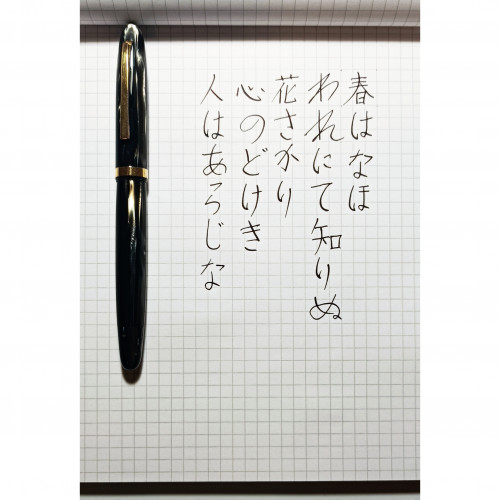 春はなほ
われにて知りぬ
花さかり
心のどけき
人はあらじな